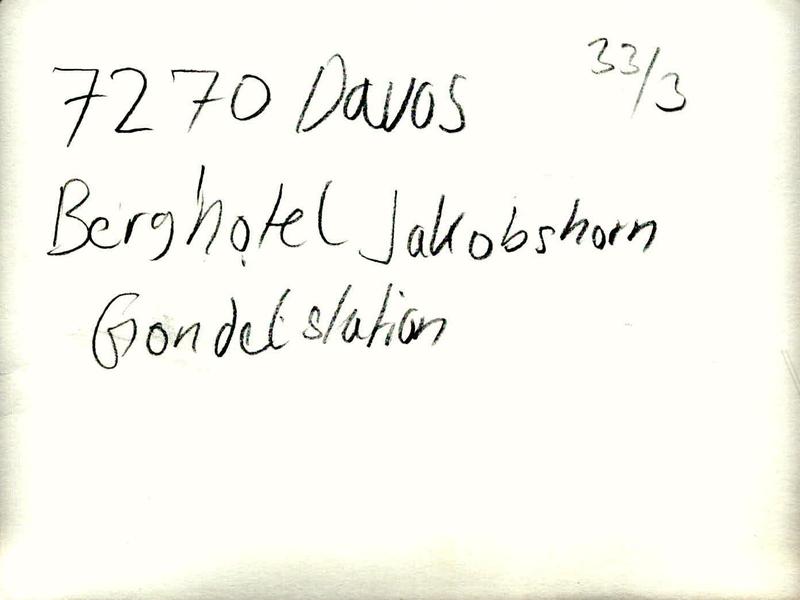 7270 Davos 33/3
Berghotel Jakobshorn
Gondelstation